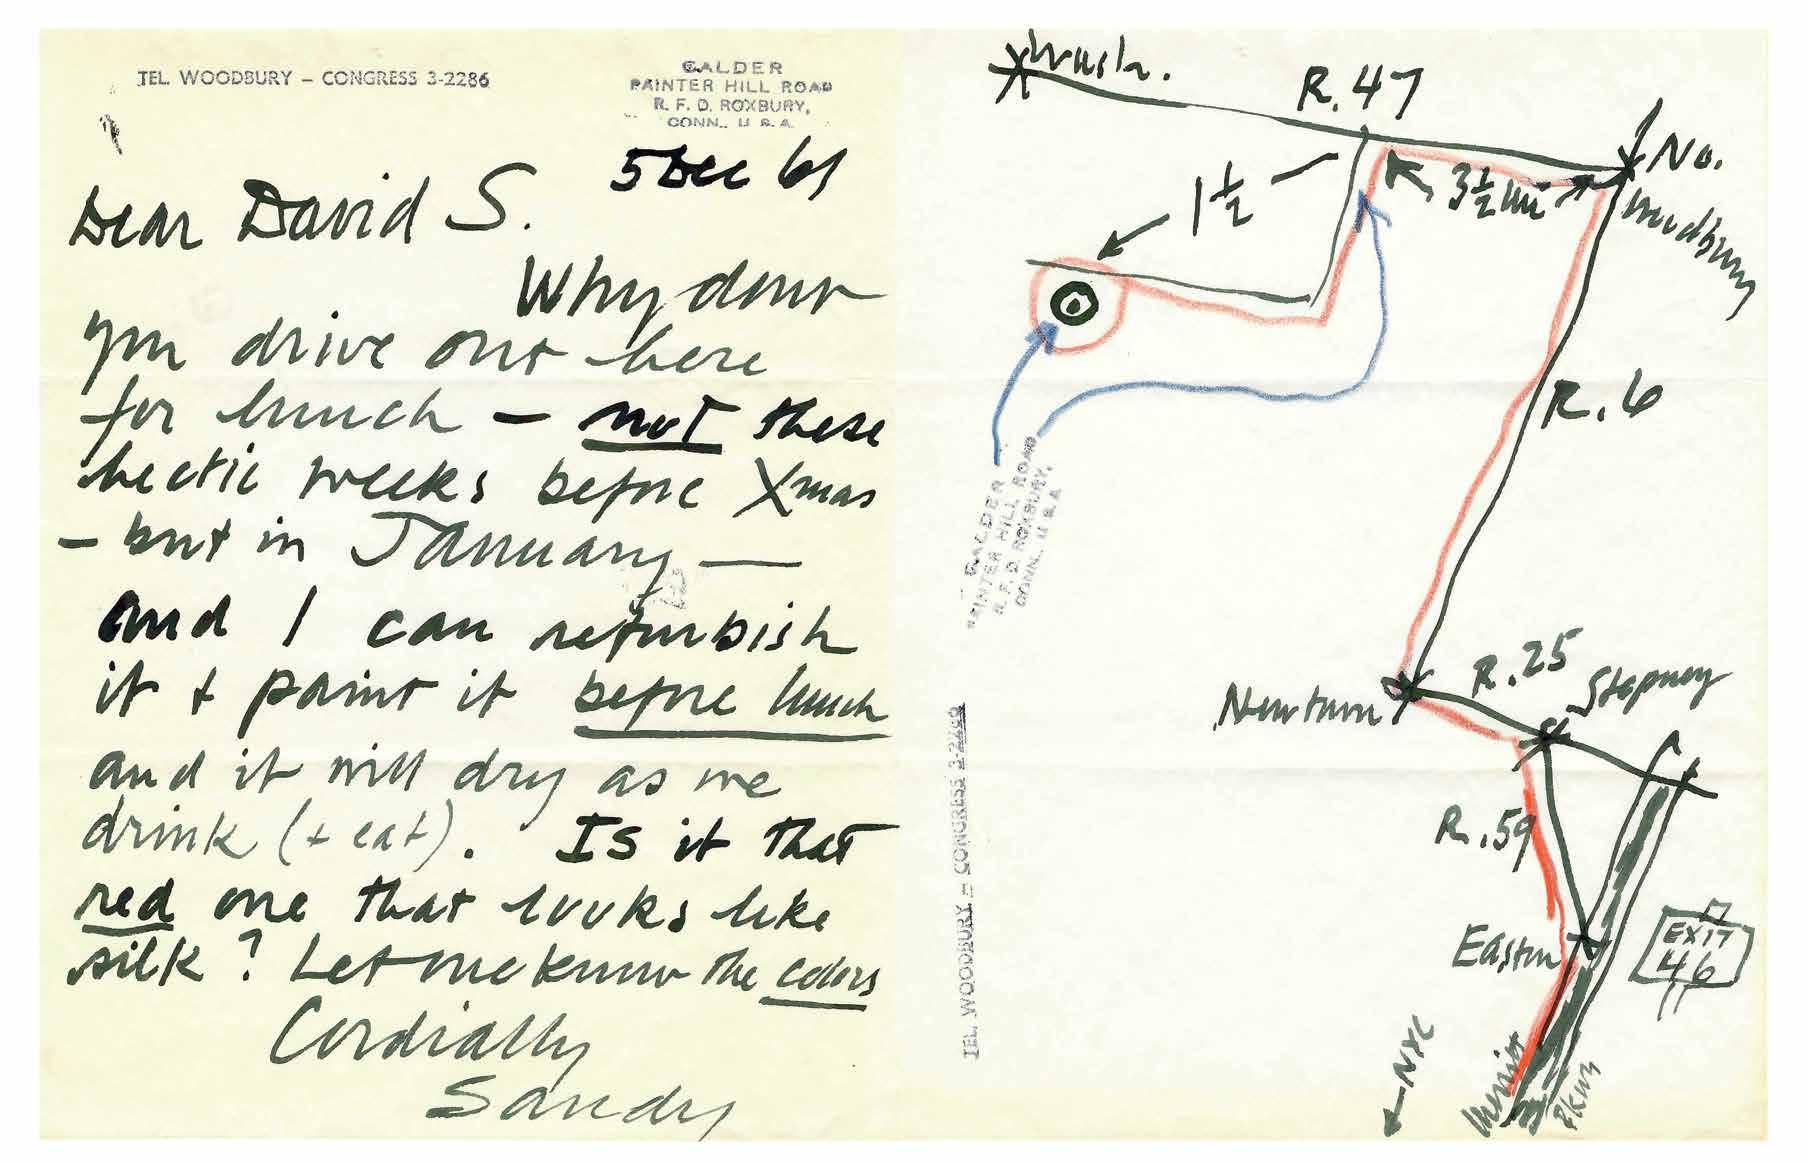 TEL. WOODBURY – CONGRESS 3-2286
CALDER
PAINTER HILL ROAD
R. F. D. ROXBURY,
CONN., U. S. A.
5 Dec 61
Dear David S.
Why dont
you drive out here
for lunch – not these
hectic weeks before Xmas
– but in January —
and I can refurbish
it + paint it before lunch
and it will dry as we
drink (+ eat). Is it that
red one that looks like
silk? Let me know the colors
Cordially
Sandy
Wash.
R. 47
No.
Woodbury
3½ mi
1½
R. 6
CALDER
PAINTER HILL ROAD
R. F. D. ROXBURY,
CONN., U. S. A.
R. 25
Stepney
Newtown
R. 59
Easton
EXIT
46
TEL. WOODBURY – CONGRESS 3-2286
← NYC
Merritt
Pkwy